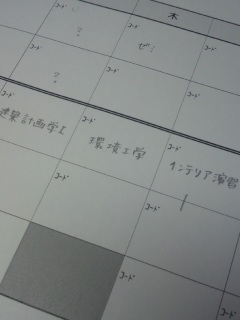 木
コード
コード
コード
?
ゼ!
コード
コード
コード
?
コード
コード
コード
建築計画学I
環境工学
インテリア演習
コード
コード
コード
コード